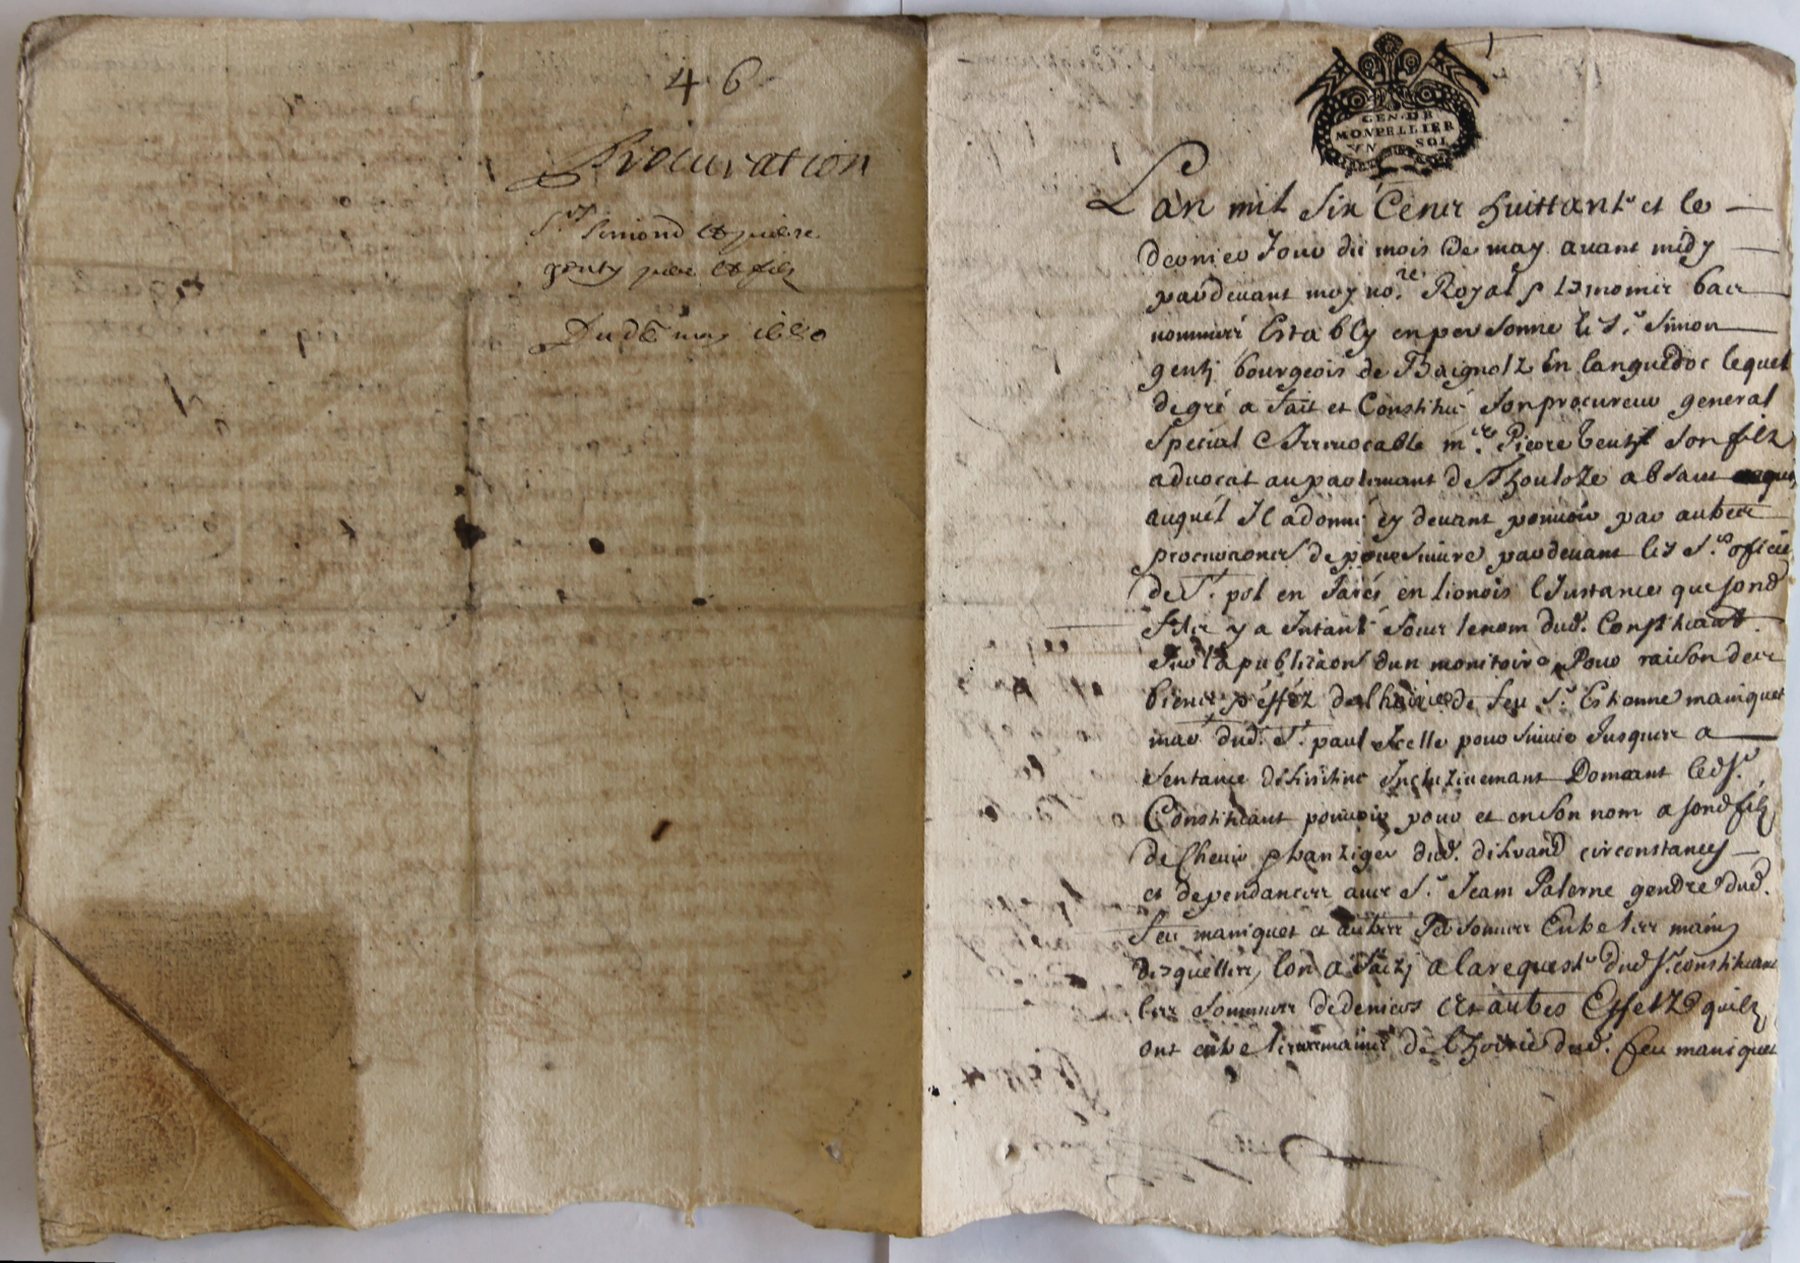 46
Procuration
Sr Simond et pierre
genty pere et fils
Du d may 1680
GEN DE
MONPELLIER
VN SOL
L'an mil six Cens huittante et le
dernier Jour du mois de may avant midy
pardevant moy nore Royal & tesmoins bas
nommés Estably en personne le Sr Simon
gentj bourgeois de Baignolz En languedoc lequel
de gré a fait et Constitué son procureur general
special & Irrevocable mre Pierre gentj son filz
advocat au parlemant de Thouloze absant
auquel Il a donné cy devant pouvoir par autres
procurations de poursuivre pardevant les Srs officie
de St. pol en Jarés en lionois l'Instance que sond
filz y a Intanté sous le nom dud. Constituant
sur la publication d'un monitoire Pour raison des
biens & effaiz de lhoirie de feu Sr Estienne maniquet
mar dud. St. paul Icelle poursuivre Jusques a
sentance difinitive Incluzivemant Donnant led Sr
Constituant pouvoir pour et en son nom a sond filz
de chevir & tranziger dud. different circonstances
et dependances avec Sr Jean Palerne gendre dud.
feu maniquet et autres Personnes Entre les mains
desquelles lon a saizj a la requeste dud Sr constituant
les sommes de deniers et autres Effetz quilz
ont entre leurs mains de lhoirie dud. feu maniquet